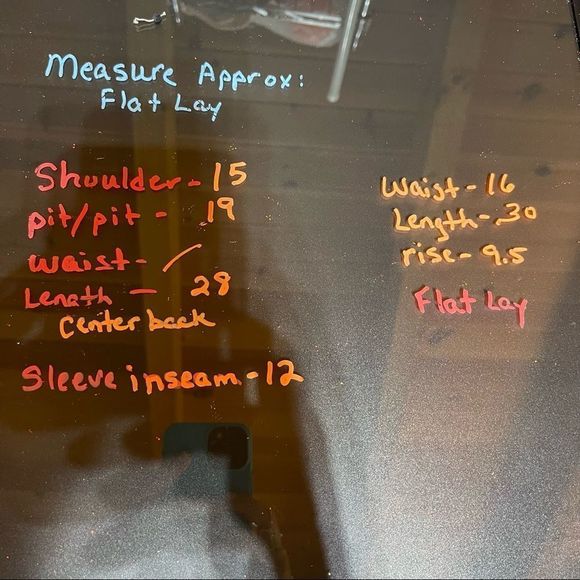 Measure Approx:
Flat Lay
Shoulder - 15
pit/pit - 19
waist - /
Length - 28
Center back
Sleeve inseam - 12
Waist - 16
Length - 30
rise - 9.5
Flat Lay